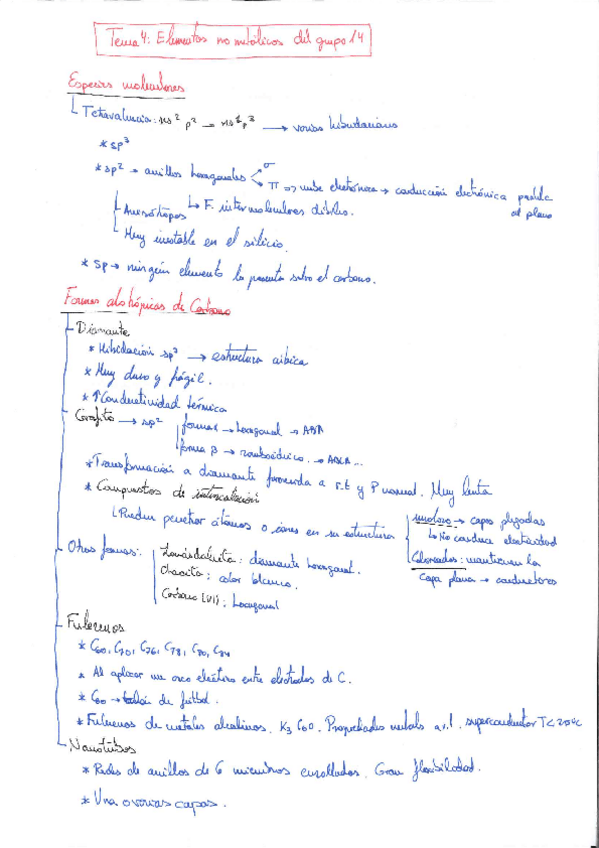 Tema 4: Elementos no metálicos del grupo 14
Especies moleculares
Tetravalencia: ns² p² → ns¹p³ → varias hibridaciones
* sp³
* sp² → anillos hexagonales < σ
π => nube electrónica → conducción electrónica paralela al plano
↳ F. intermoleculares débiles.
Anisótropos
Muy inestable en el silicio.
* sp → ningún elemento lo presenta salvo el carbono.
Formas alotrópicas de Carbono
Diamante
* Hibridación sp³ → estructura cúbica
* Muy duro y frágil.
* ↑Conductividad térmica
Grafito → sp²
forma α → hexagonal → ABA
forma β → romboédrico. → ABCA...
* Transformación a diamante favorecida a P normal. Muy lenta
* Compuestos de intercalación
↳ Pueden penetrar átomos o iones en su estructura
incoloro → capas plegadas
↳ No conduce electricidad
Coloreados: mantienen la
capa plana → conductores
Otras formas:
Lonsdaleita: diamante hexagonal.
Chaoita: color blanco.
Carbono (VI): hexagonal
Fulerenos
* C60, C70, C76, C78, C80, C84
* Al aplicar un arco eléctrico entre electrodos de C.
* C60 → balón de fútbol.
* Fulerenos de metales alcalinos. K3 C60. Propiedades metals a r.t. superconductor T<
Nanotubos
* Redes de anillos de 6 miembros enrollados. Gran flexibilidad.
* Una o varias capas.